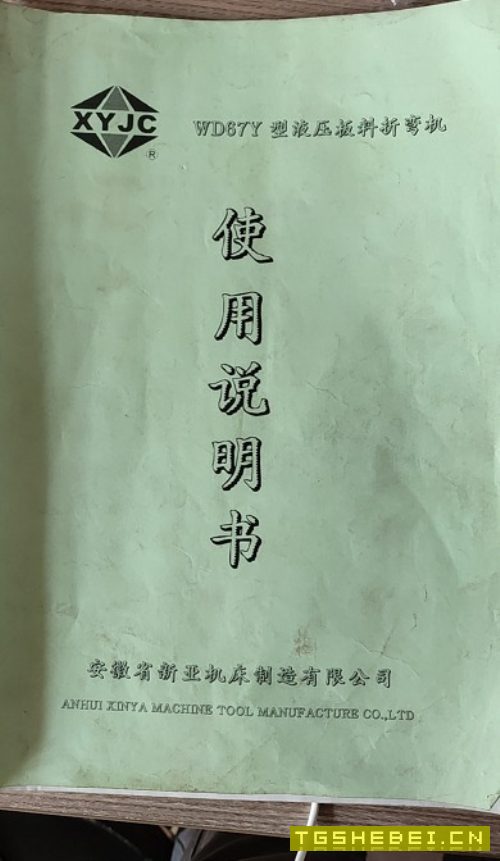 XYJC
®
WD67Y 型液压板料折弯机
使用说明书
安徽省新亚机床制造有限公司
ANHUI XINYA MACHINE TOOL MANUFACTURE CO.,LTD
TGSHEBEI.CN